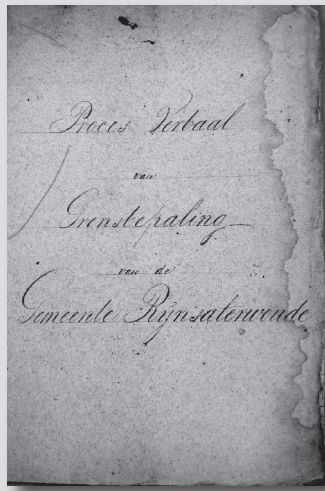 Proces Verbaal
van
Grensbepaling
van de
Gemeente Rijnsaterwoude